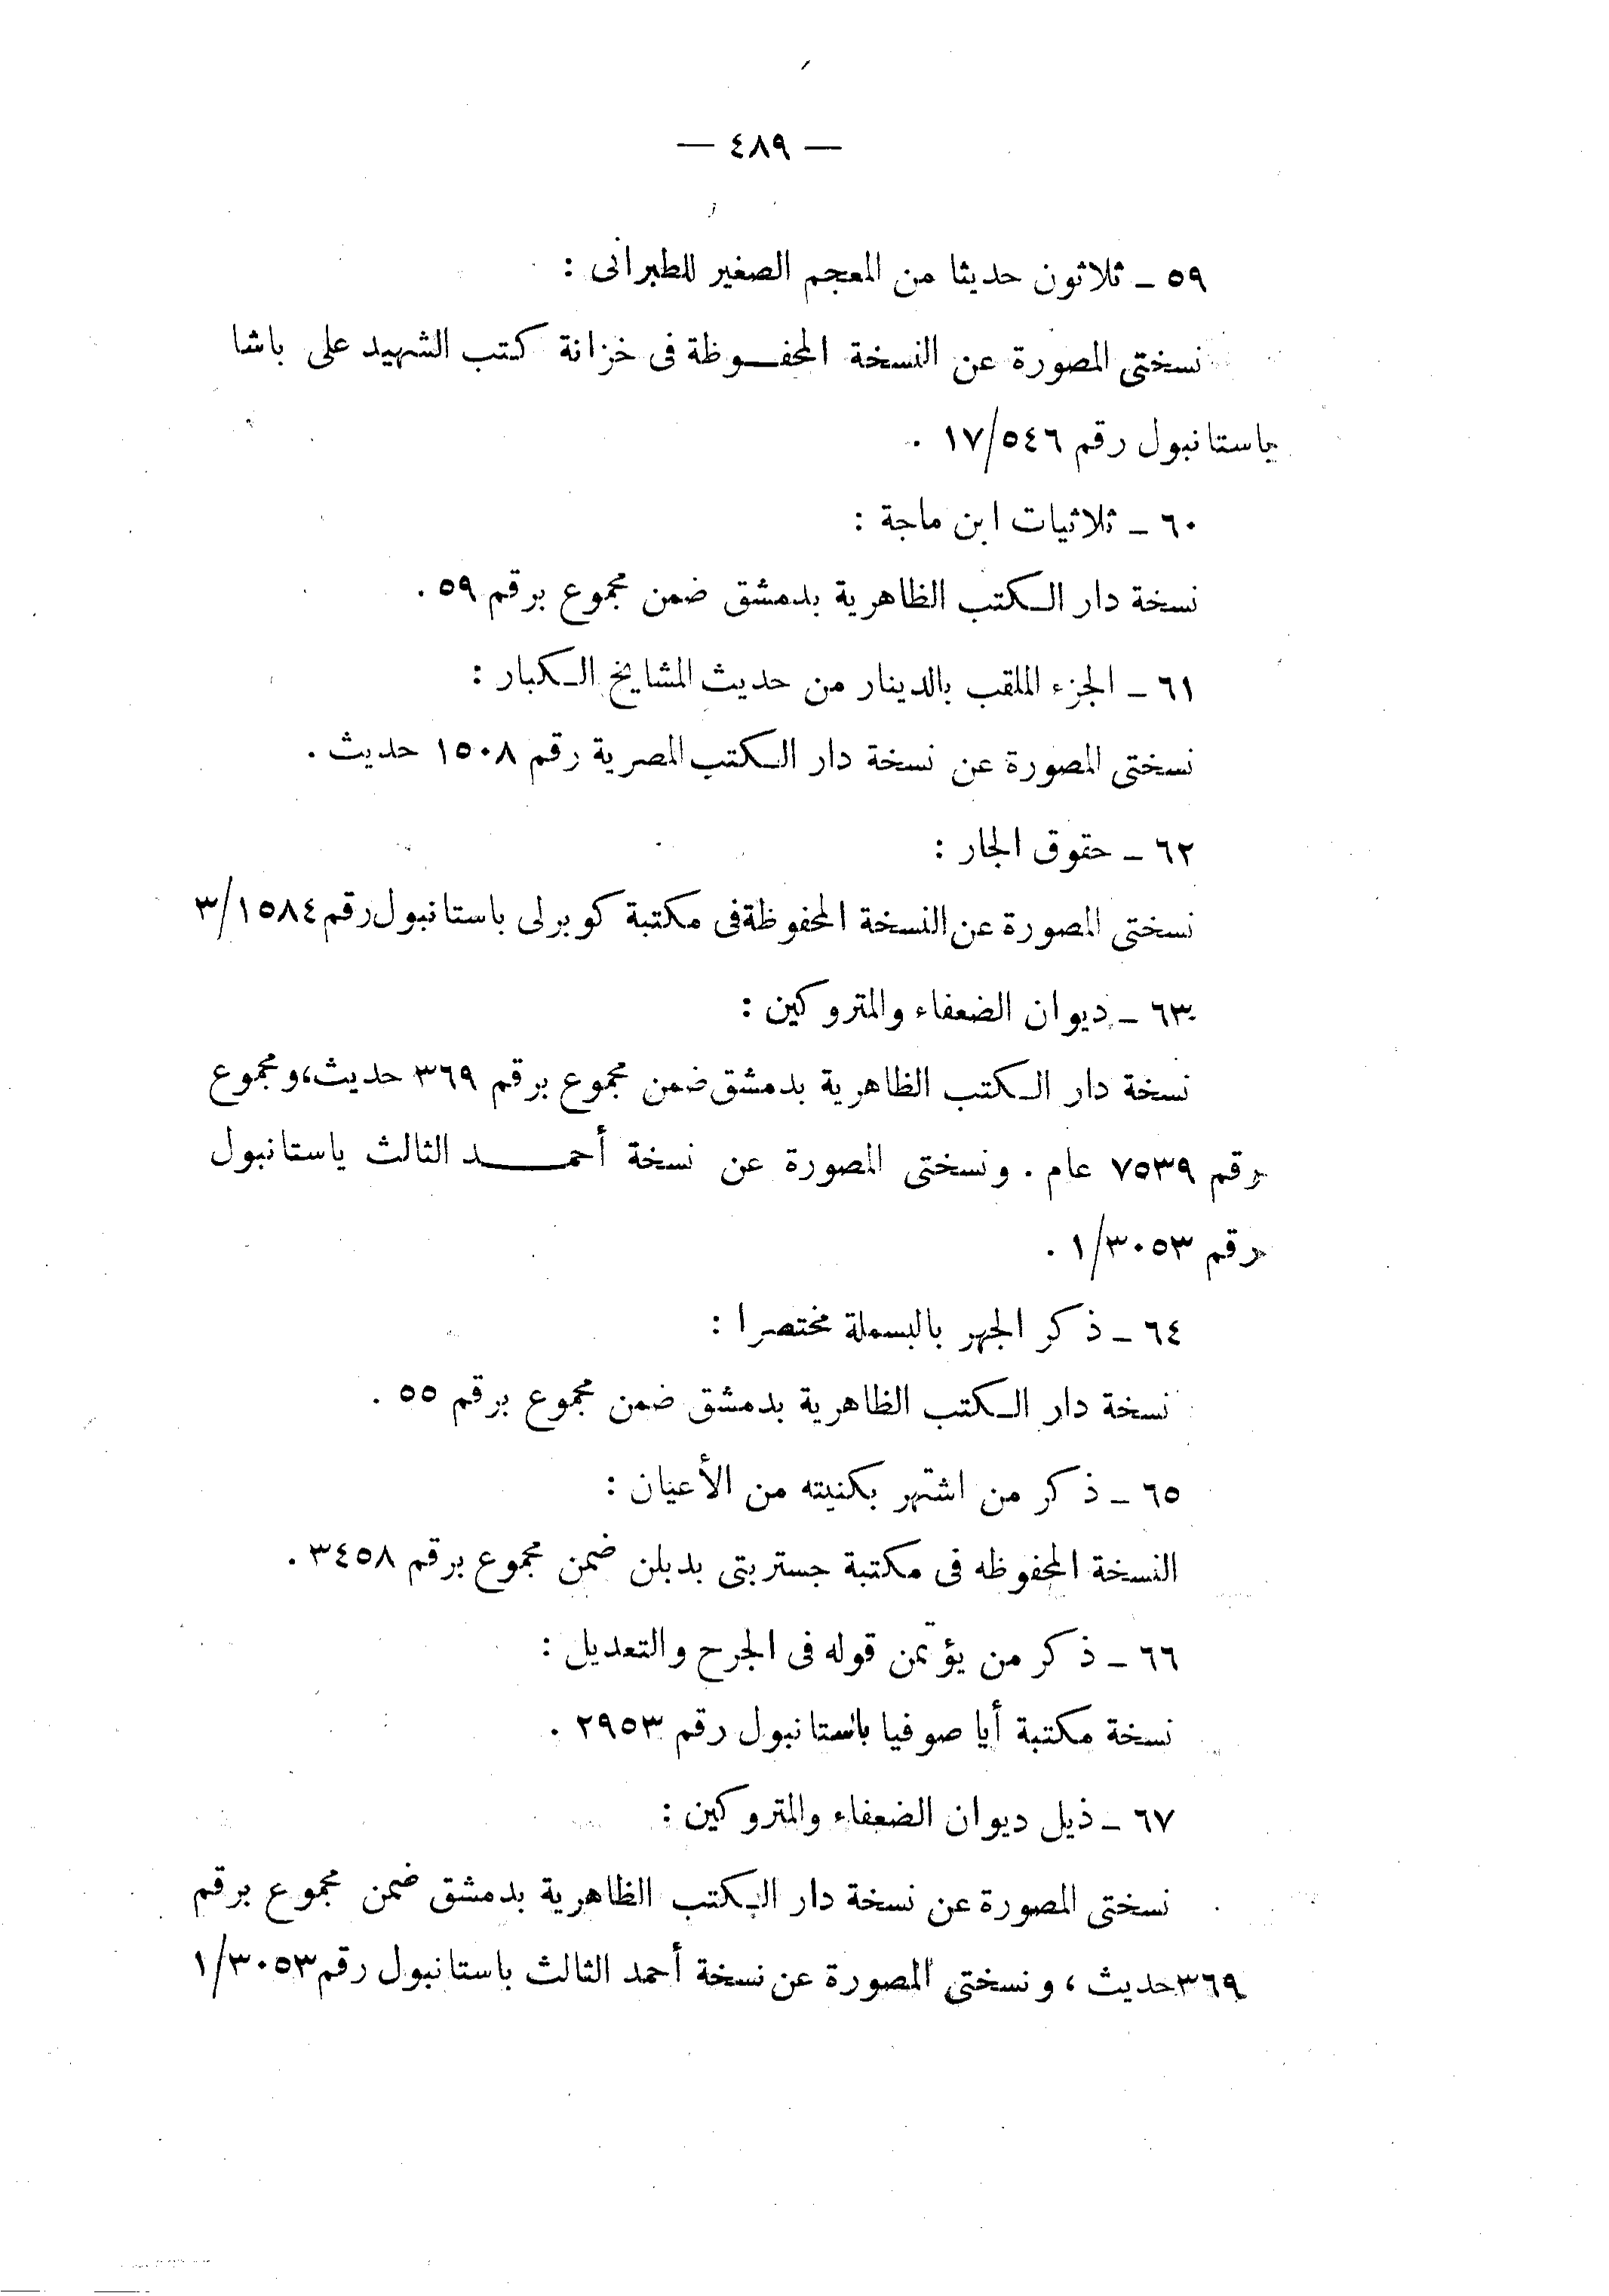 — ٤٨٩ —
٥٩ ـ ثلاثون حديثا من المعجم الصغير للطبرانى :
نسختى المصورة عن النسخة المحفـوظة فى خزانة كتب الشهيد على باشا
باستانبول رقم ١٧/٥٤٦ .
٦٠ ـ ثلاثيات ابن ماجة :
نسخة دار الـكتب الظاهرية بدمشق ضمن مجموع برقم ٥٩ .
٦١ ـ الجزء الملقب بالدينار من حديث المشايخ الـكبار :
نسختى المصورة عن نسخة دار الـكتب المصرية رقم ١٥٠٨ حديث .
٦٢ ـ حقوق الجار :
نسختى المصورة عن النسخة المحفوظة فى مكتبة كوبرلى باستانبول رقم ٣/١٥٨٤
٦٣ ـ ديوان الضعفاء والمتروكين :
نسخة دار الـكتب الظاهرية بدمشق ضمن مجموع برقم ٣٦٩ حديث، ومجموع
رقم ٧٥٣٩ عام . ونسختى المصورة عن نسخة أحمـــد الثالث باستانبول
رقم ١/٣٠٥٣ .
٦٤ ـ ذكر الجهر بالبسملة مختصرا :
نسخة دار الـكتب الظاهرية بدمشق ضمن مجموع برقم ٥٥ .
٦٥ ـ ذكر من اشتهر بكنيته من الأعيان :
النسخة المحفوظه فى مكتبة جستربتى بدبلن ضمن مجموع برقم ٣٤٥٨ .
٦٦ ـ ذكر من يؤتمن قوله فى الجرح والتعديل :
نسخة مكتبة أيا صوفيا باستانبول رقم ٢٩٥٣ .
٦٧ ـ ذيل ديوان الضعفاء والمتروكين :
نسختى المصورة عن نسخة دار الـكتب الظاهرية بدمشق ضمن مجموع برقم
٣٦٩ حديث ، ونسختى المصورة عن نسخة أحمد الثالث باستانبول رقم ١/٣٠٥٣